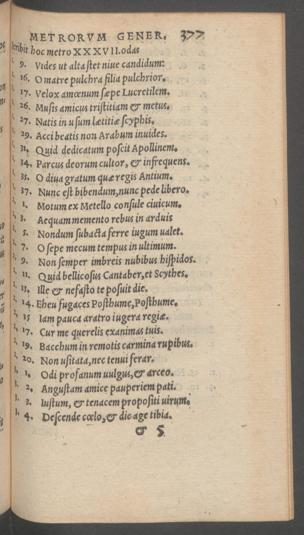 METRORVM GENER. 377
scribit hoc metro XXXVII. odas
9. Vides ut alta stet niue candidum:
16. O matre pulchra filia pulchrior.
17. Velox amœnum sæpe Lucretilem.
26. Musis amicus tristitiam & metus.
27. Natis in usum lætitiæ scyphis.
29. Acci beatis non Arabum inuides.
31. Quid dedicatum poscit Apollinem.
34. Parcus deorum cultor, & infrequens.
35. O diua gratum quæ regis Antium.
37. Nunc est bibendum, nunc pede libero.
1. Motum ex Metello consule ciuicum.
3. Aequam memento rebus in arduis
5. Nondum subacta ferre iugum ualet.
7. O sepe mecum tempus in ultimum.
9. Non semper imbreis nubibus hispidos.
11. Quid bellicosus Cantaber, et Scythes.
13. Ille & nefasto te posuit die.
14. Eheu fugaces Posthume, Posthume.
15 Iam pauca aratro iugera regiæ.
17. Cur me querelis exanimas tuis.
19. Bacchum in remotis carmina rupibus.
20. Non usitata, nec tenui ferar.
1. Odi profanum uulgus, & arceo.
2. Angustam amice pauperiem pati.
3. Iustum, & tenacem propositi uirum.
4. Descende cœlo, & dic age tibia.
G 5